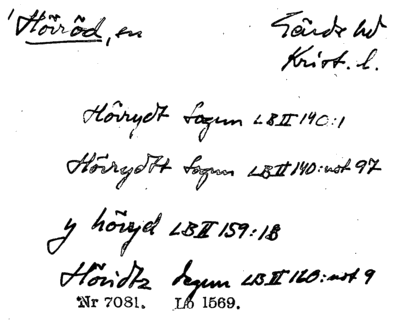 Höiröd, en
Gärds hd
Krist. l.
Höirydt Sogun LB II 140:1
Höirydtt Sogun LB II 140: not 97
y höryd LB II 159:18
Höridtz Segun LB II 160: not 9
Nr 7081. Lb 1569.